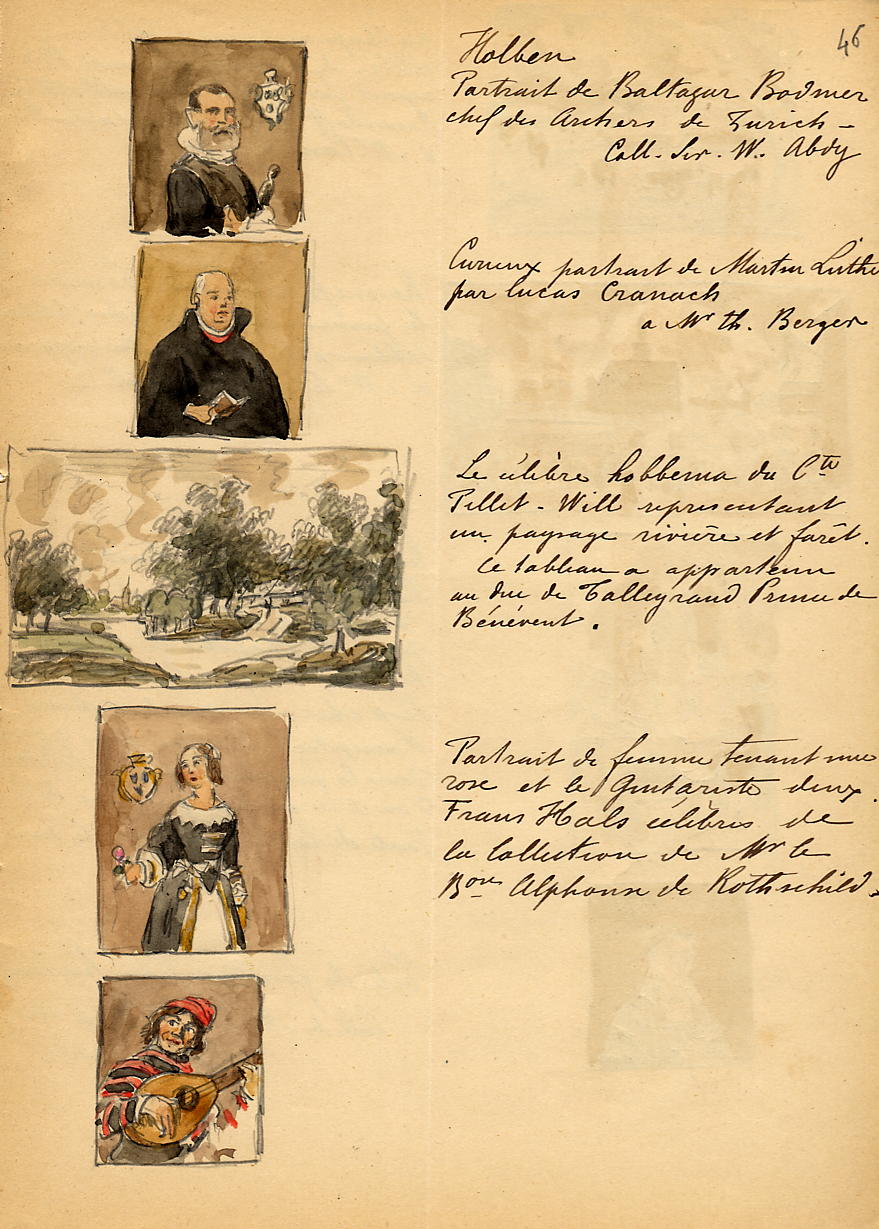 46
Holben
Portrait de Baltazar Bodmer
chef des Archers de Zurich -
Coll. Sir. W. Abdy
Curieux portrait de Martin Luthe
par Lucas Cranach
a Mr th. Berger
Le célèbre hobbema du Cte
Pillet - Will representant
un paysage rivière et forêt.
Ce tableau a appartenu
au duc de Talleyrand Prince de
Bénévent.
Portrait de femme tenant une
rose et le Guitariste deux
Frans Hals célèbres de
la Collection de Mr le
Bon Alphonse de Rothschild.